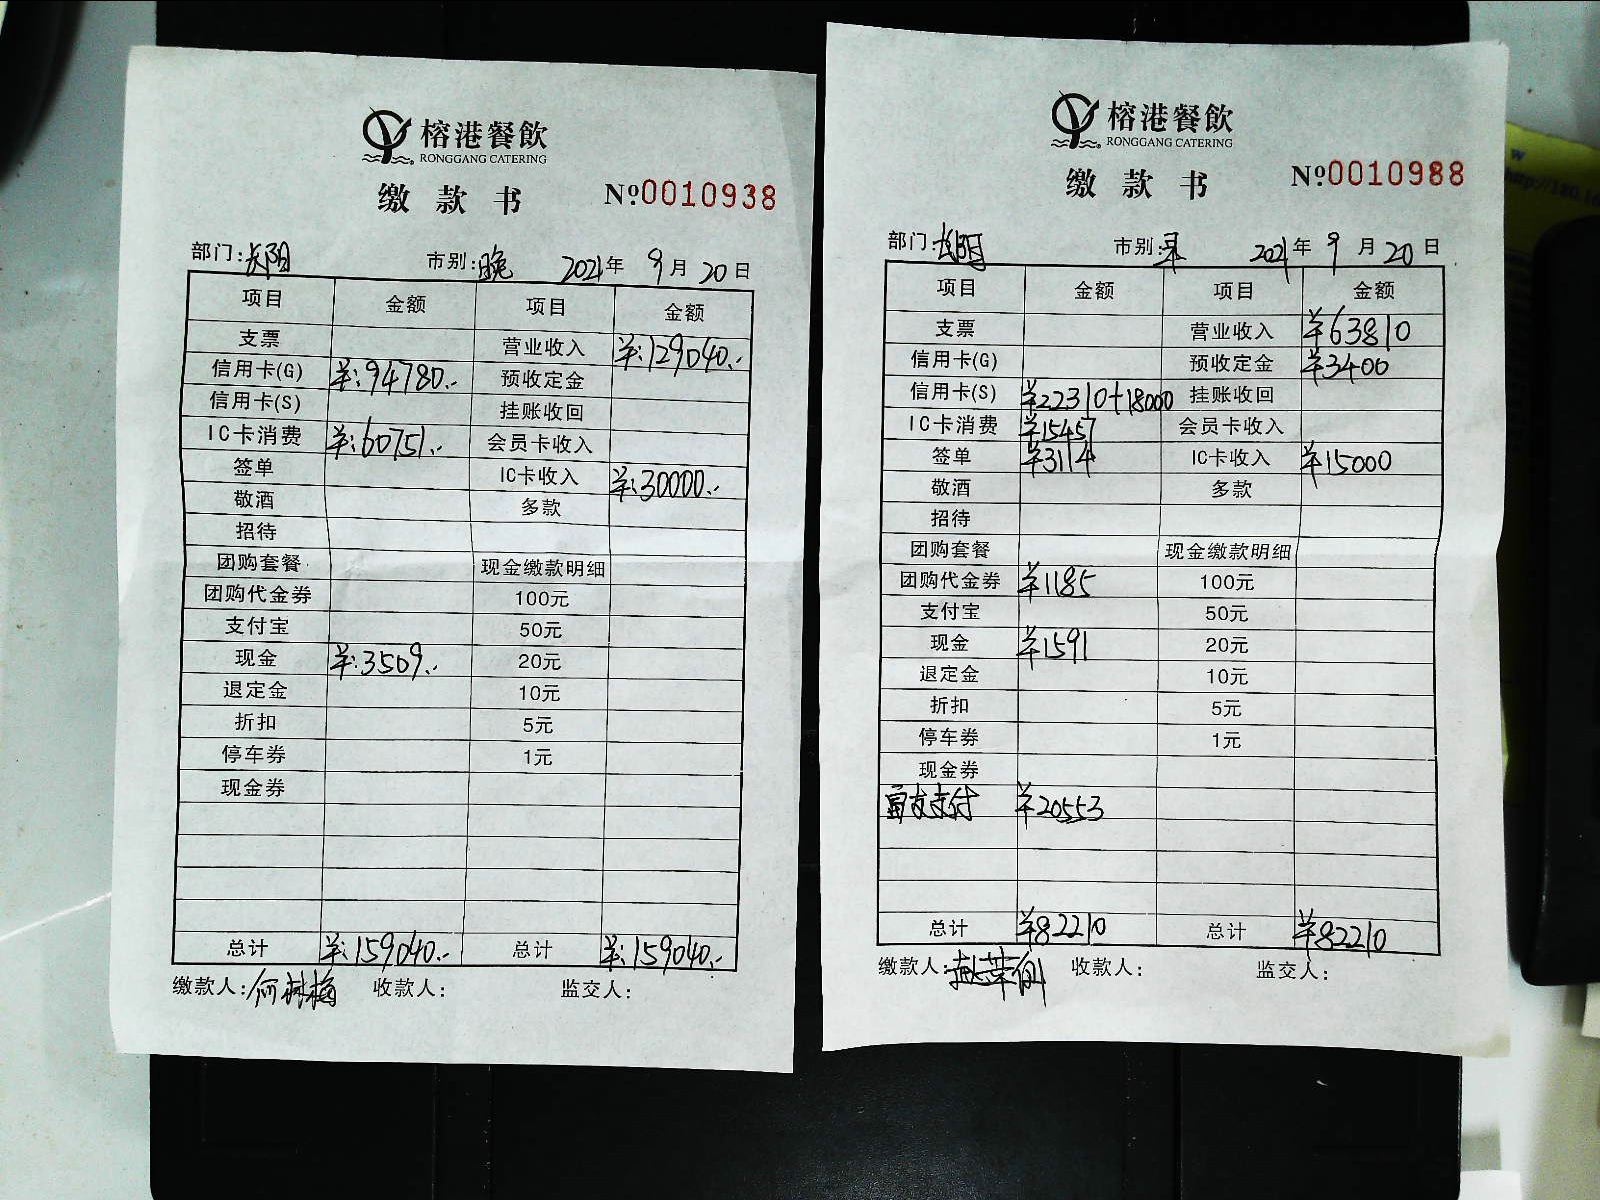 榕港餐飲
RONGGANG CATERING
缴款书 №0010938
部门:长阳 市别:晚 2021年9月20日
项目 金额 项目 金额
支票 营业收入 ¥:129040.-
信用卡(G) ¥:94780.- 预收定金
信用卡(S) 挂账收回
IC卡消费 ¥:60751.- 会员卡收入
签单 IC卡收入 ¥:30000.-
敬酒 多款
招待
团购套餐 现金缴款明细
团购代金券 100元
支付宝 50元
现金 ¥:3509.- 20元
退定金 10元
折扣 5元
停车券 1元
现金券
总计 ¥:159040.- 总计 ¥:159040.-
缴款人:何林梅 收款人: 监交人:
榕港餐飲
RONGGANG CATERING
缴款书 №0010988
部门:长阳 市别: 2021年9月20日
项目 金额 项目 金额
支票 营业收入 ¥63810
信用卡(G) 预收定金 ¥3400
信用卡(S) ¥22310+18000 挂账收回
IC卡消费 ¥15457 会员卡收入
签单 ¥3114 IC卡收入 ¥15000
敬酒 多款
招待
团购套餐 现金缴款明细
团购代金券 ¥1185 100元
支付宝 50元
现金 ¥1591 20元
退定金 10元
折扣 5元
停车券 1元
现金券
支付 ¥20553
总计 ¥82210 总计 ¥82210
缴款人: 收款人: 监交人:
w
http://180.16